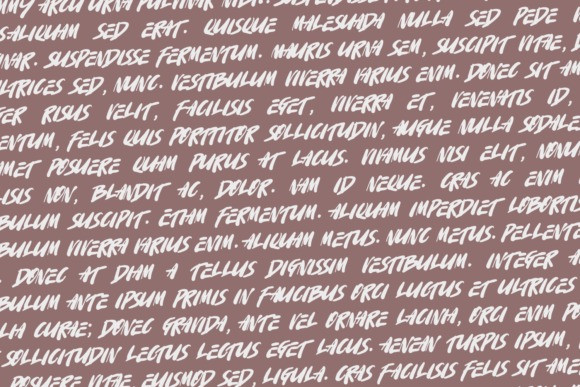 ARCU URNA PULVINAR
ALIQUAM SED ERAT. QUISQUE MALESUADA NULLA SED PEDE
NAR. SUSPENDISSE FERMENTUM. MAURIS URNA SEM, SUSCIPIT VITAE,
LTRICES SED, NUNC. VESTIBULUM VIVERRA VARIUS ENIM. DONEC SIT AM
ER RISUS VELIT, FACILISIS EGET, VIVERRA ET, VENENATIS ID,
ENTUM, FELIS QUIS PORTTITOR SOLLICITUDIN, AUGUE NULLA SODALE
MET POSUERE QUAM PURUS AT LACUS. VIVAMUS NISI ELIT, NONU
ISIS NON, BLANDIT AC, DOLOR. NAM ID NEQUE. CRAS AC ENIM
BULUM SUSCIPIT. ETIAM FERMENTUM. ALIQUAM IMPERDIET LOBORTI
BULUM VIVERRA VARIUS ENIM. ALIQUAM METUS. NUNC METUS. PELLENTE
. DONEC AT DIAM A TELLUS DIGNISSIM VESTIBULUM. INTEGER A
BULUM ANTE IPSUM PRIMIS IN FAUCIBUS ORCI LUCTUS ET ULTRICES
LIA CURAE; DONEC GRAVIDA, ANTE VEL ORNARE LACINIA, ORCI ENIM PO
SOLLICITUDIN LECTUS LECTUS EGET LACUS. AENEAN TURPIS IPSUM,
POSUERE VITAE, EUISMOD SED, LIGULA. CRAS FACILISIS FELIS SIT AME